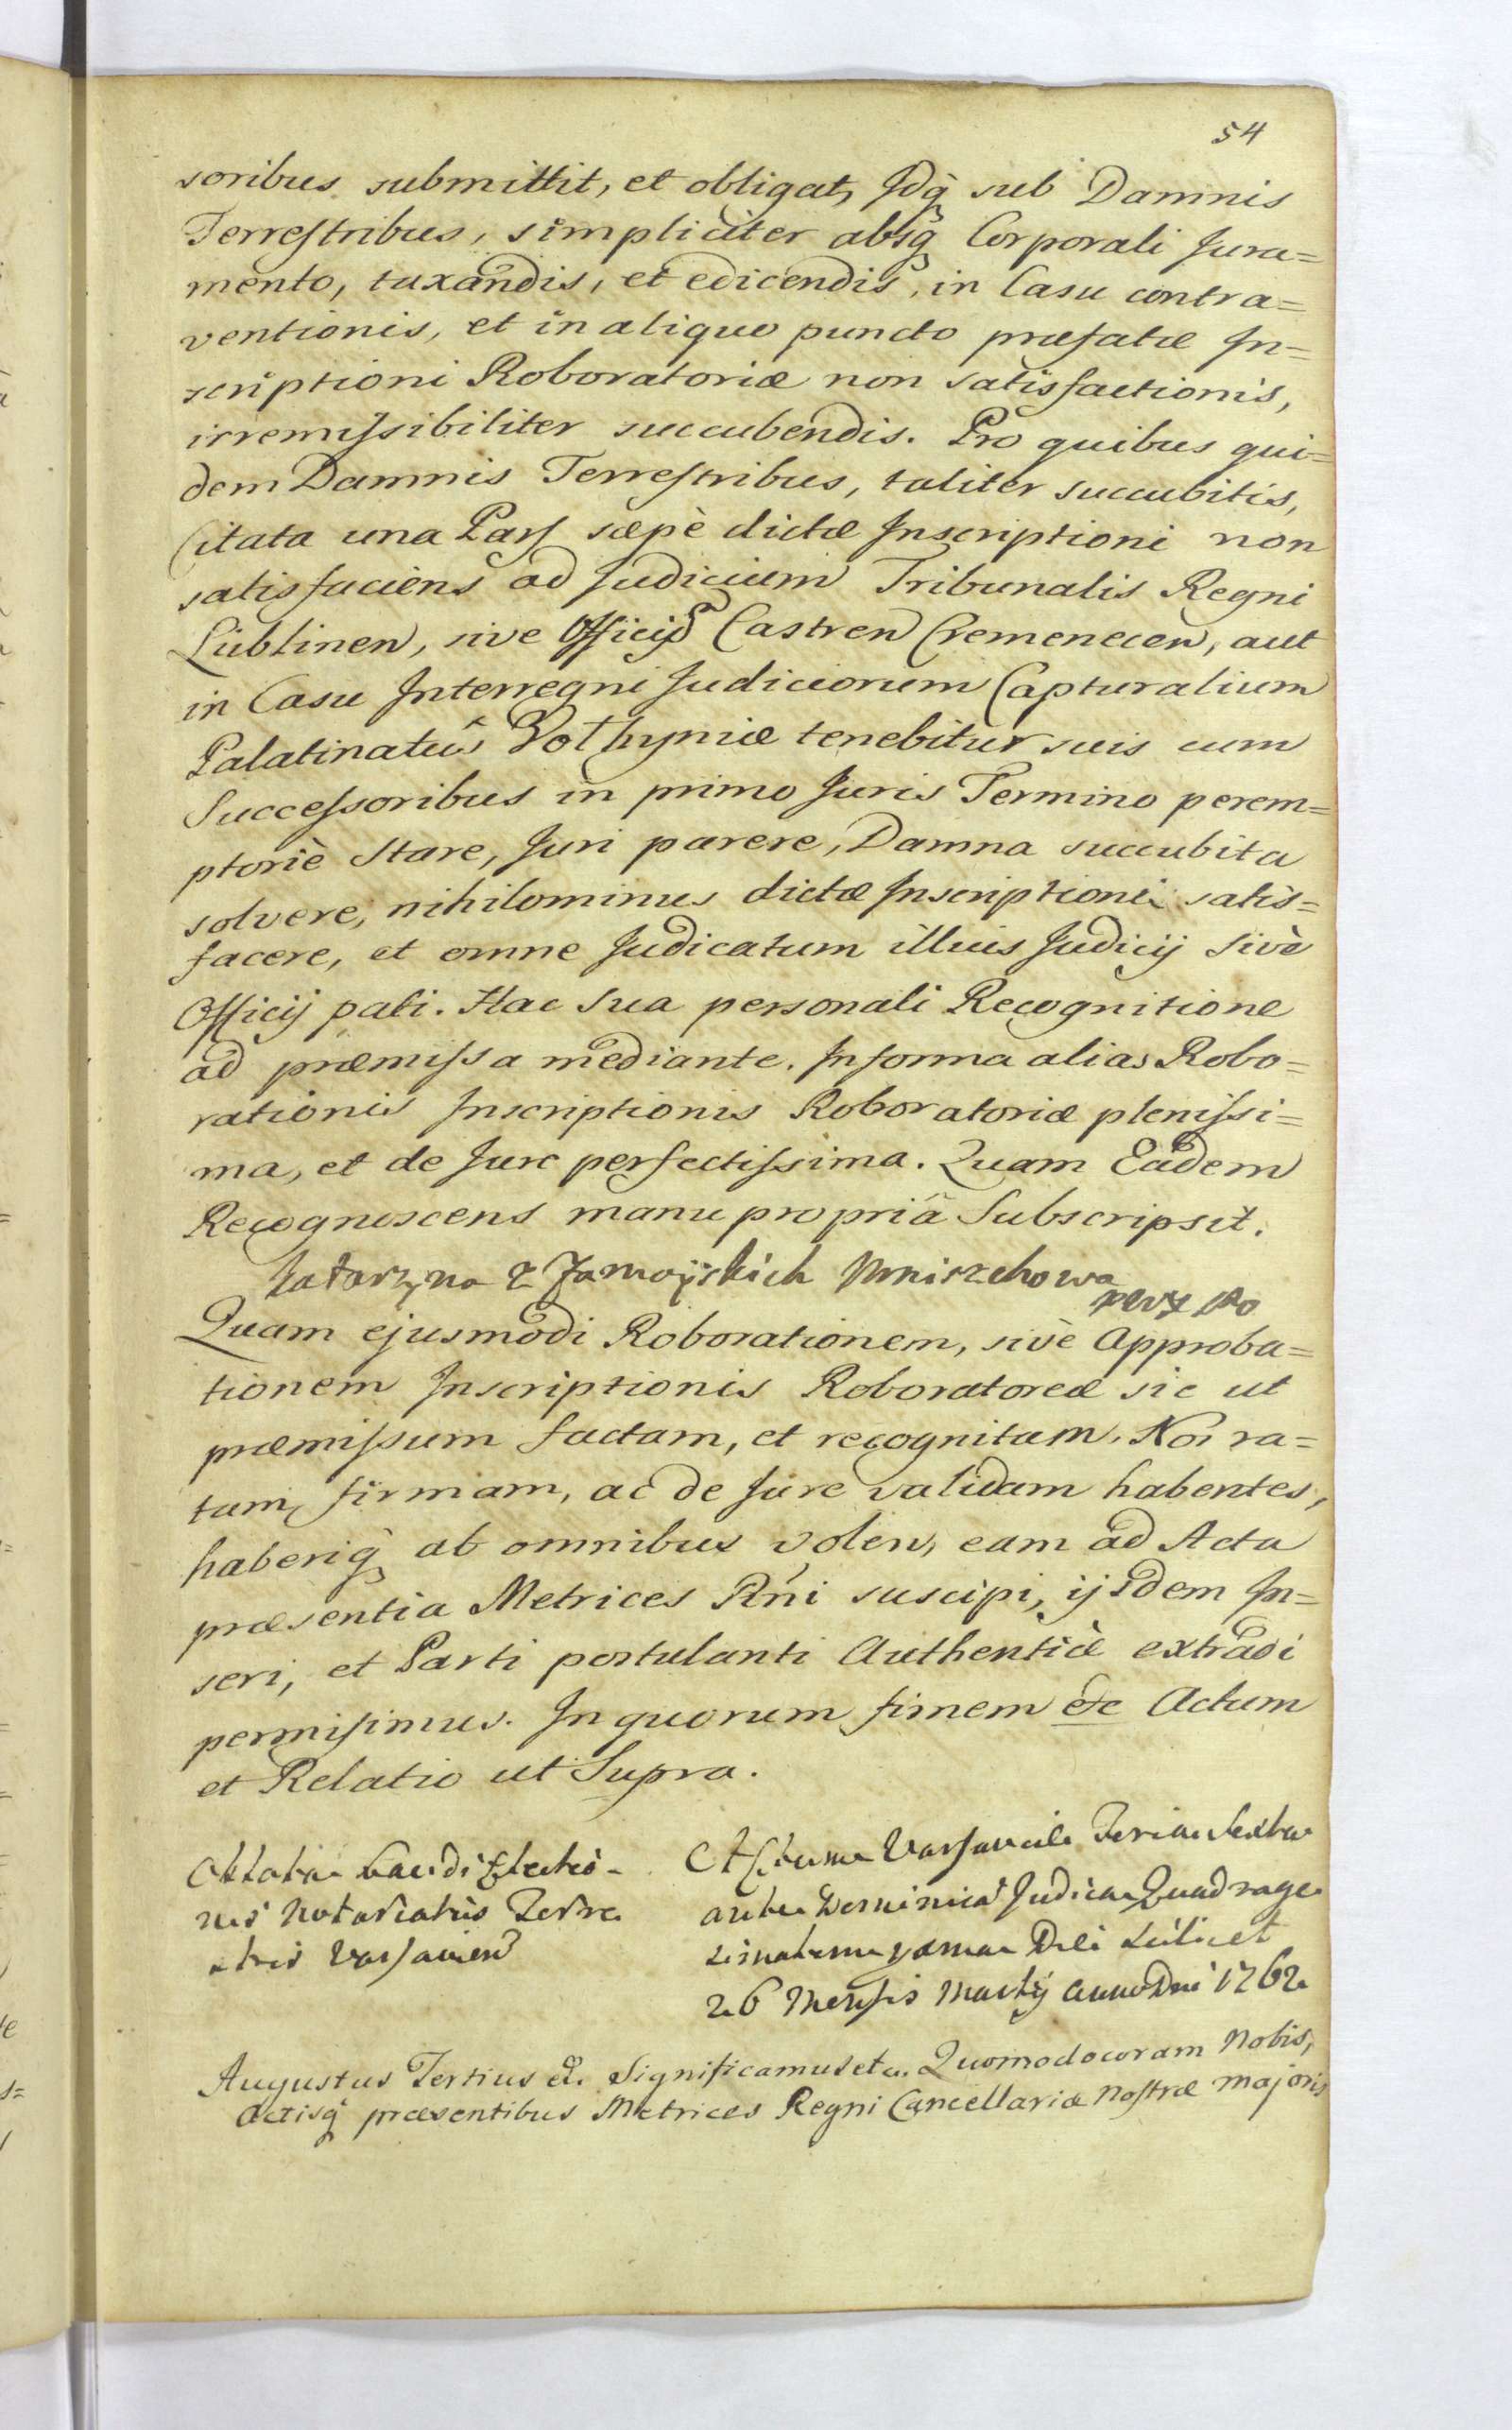 54
soribus submittit, et obligat, Idq́ sub Damnis
Terrestribus, simpliciter absq́ Corporali Jura=
mento, taxandis, et edicendis, in Casu contra=
ventionis, et in aliquo puncto præfatæ In=
scriptioni Roboratoriæ non satisfactionis,
irremissibiliter succubendis. Pro quibus qui=
dem Damnis Terrestribus, taliter succubitis,
Citata una Pars sæpè dictæ Inscriptioni non
satisfaciens ad Judicium Tribunalis Regni
Lublinen, sive Officij Castren Cremenecen, aut
in Casu Interregni Judiciorum Capturalium
Palatinatûs Volhyniæ tenebitur suis cum
Successoribus in primo Juris Termino perem=
ptoriè Stare, Juri parere, Damna succubita
solvere, nihilominus dictæ Inscriptioni satis=
facere, et omne Judicatum illius Judicij sivè
Officij pati. Hac sua personali Recognitione
ad præmissa mediante. In forma alias Robo=
rationis Inscriptionis Roboratoriæ plenissi=
ma, et de Jure perfectissima. Quam Eadem
Recognoscens manu propriâ Subscripsit.
Katarzyna z Zamoyskich Mniszchowa
Quam ejusmodi Roborationem, sivè Approba=
tionem Inscriptionis Roboratoreæ sic ut
præmissum factam, et recognitam. Nos ra=
tam, firmam, ac de Jure validam habentes,
haberiq́ ab omnibus volen, eam ad Acta
præsentia Metrices Rńi suscipi, ijsdem In=
seri, et Parti postulanti Authenticè extradi
permisimus. In quorum finem etc Actum
et Relatio ut Supra.
Oblata Laudi Electio-
nis Notariatûs Terre
stris Varsavien
Actum Varsaviæ Feria Sexta
ante Dominicã Judica Quadrage
simalem Die scilicet
26 Mensis Martij Anno Dni 1762
Augustus Tertius etc. Significamus etc. Quomodo coram Nobis,
Actisq́ præsentibus Metrices Regni Cancellariæ Nostræ Majoris